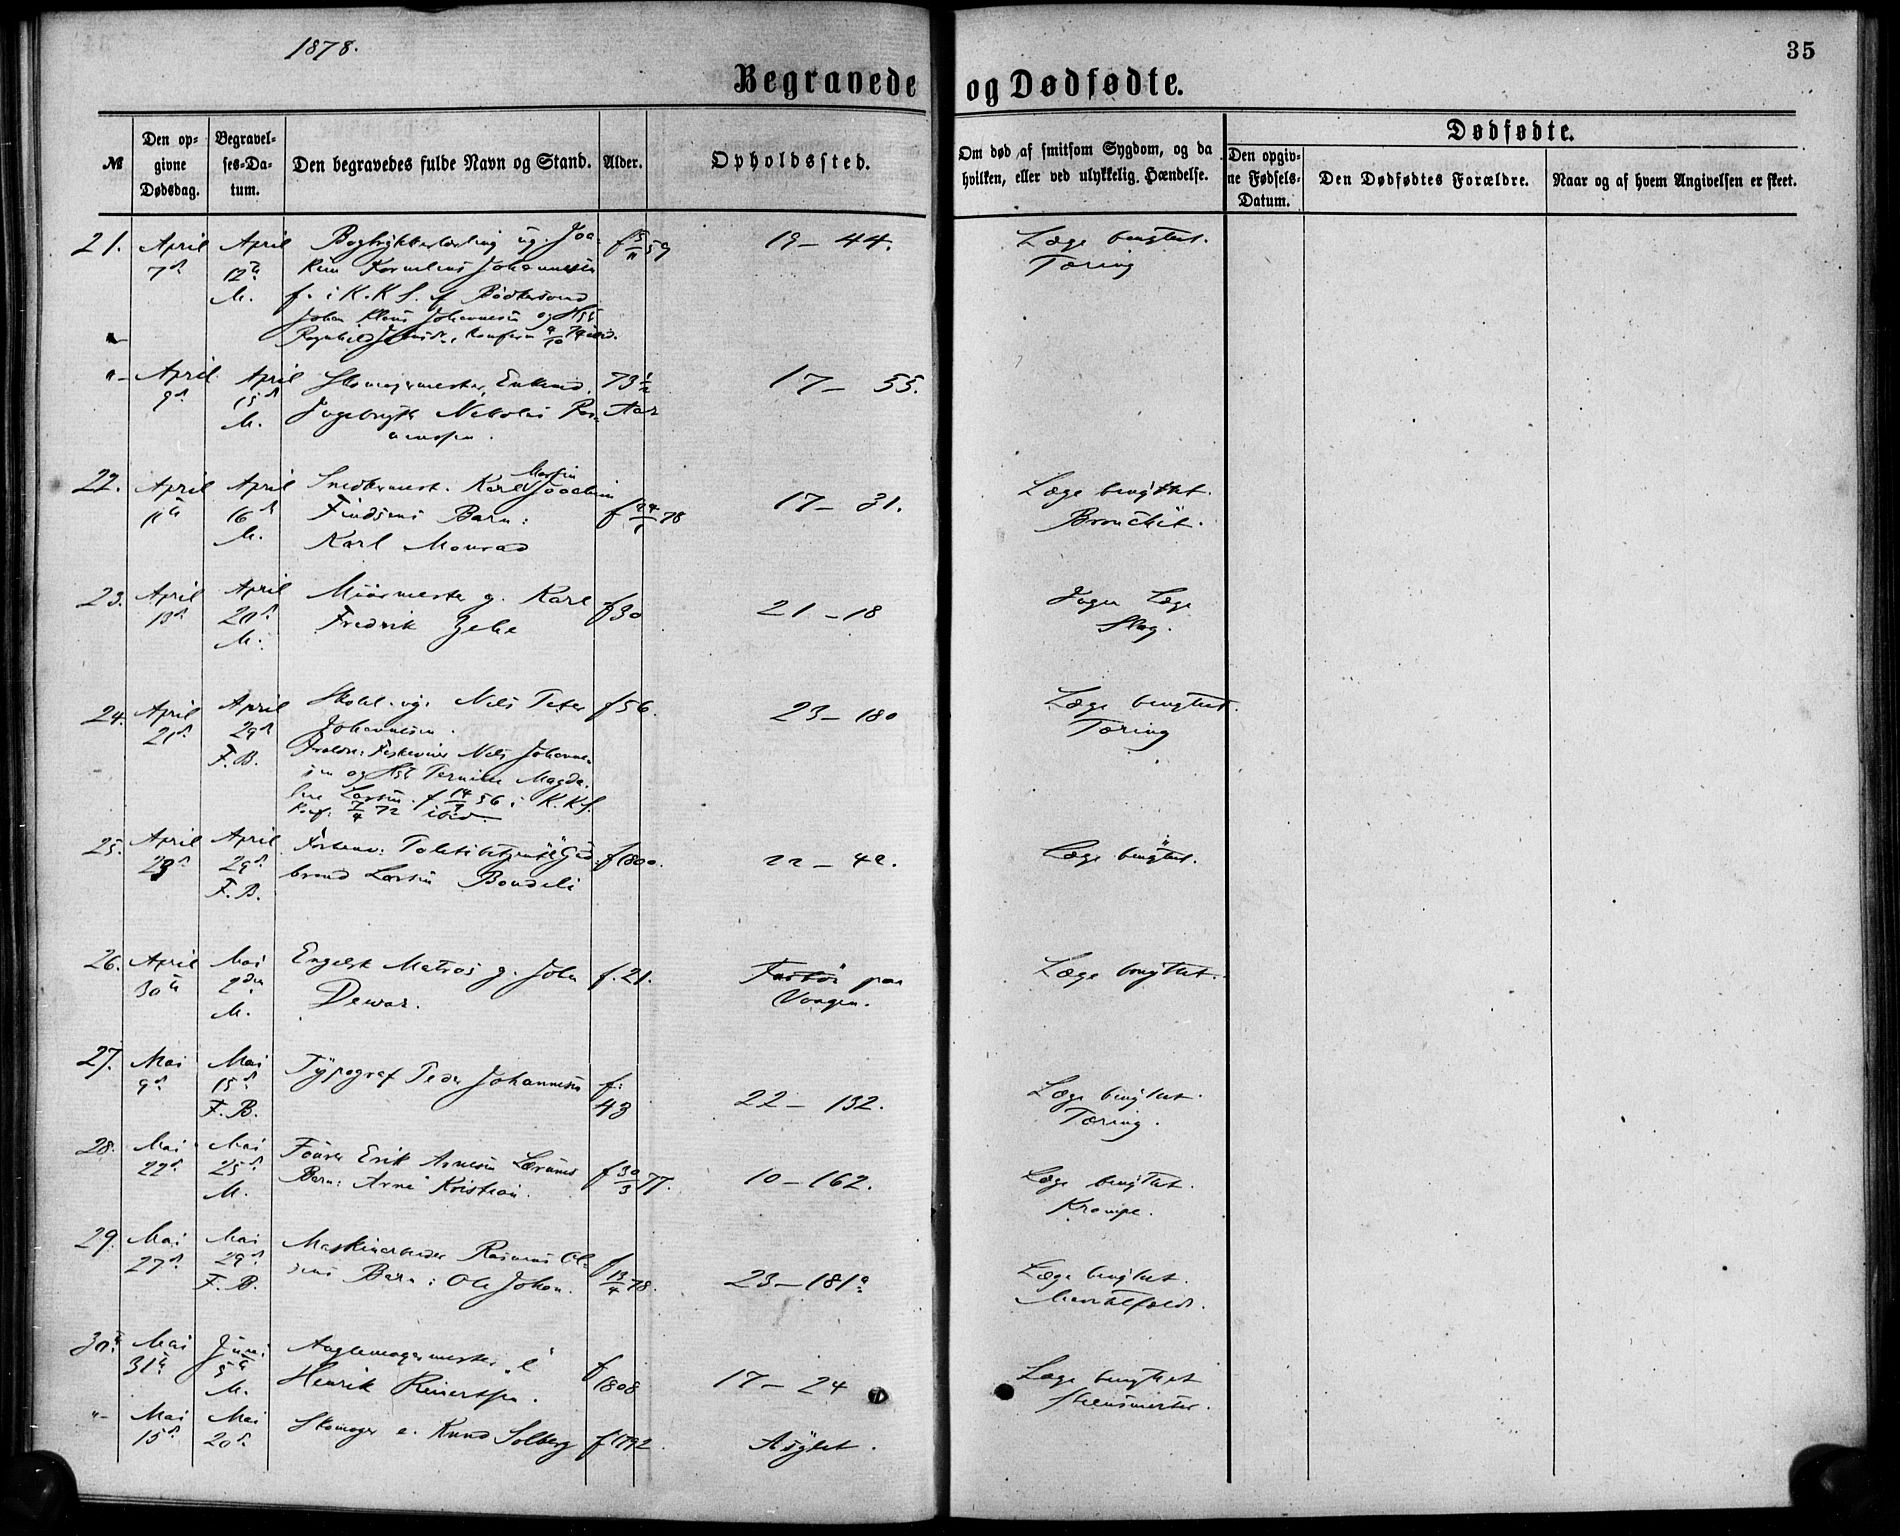 1878.
35
Begravede og Dødfødte.
№
Den op-
givne
Dødsdag.
Begravel-
ses-Da-
tum.
Den begravedes fulde Navn og Stand.
Alder.
Opholdssted.
Om død af smitsom Sygdom, og da
hvilken, eller ved ulykkelig Hændelse.
Dødfødte.
Den opgiv-
ne Fødsels-
Datum.
Den Dødfødtes Forældre.
Naar og af hvem Angivelsen er skeet.
21. April 7d April 12te M.
Bogtrykkerlærling ug. Joa-
kim Kornelius Johannesen
f. i K.K.S. af Bødkersvend
Johan Johannesen og Hst
f 15/11 59
19 - 44.
Læge benyttet.
Tæring
"- April 9d April 15d M.
Skomagermester, Enkemd.
Ingebrigt Nikolai
73 1/2 Aar
17 - 55.
22. April 11te April 16d M.
Snedkermest. Karl Martin Joachim
Findsens Barn:
Karl Monrad
f 24/1 78
17 - 31.
Læge benyttet.
Bronchit.
23. April 13d April 20d M.
Murmester g. Karl
Fredrik
f 30
21 - 18
Ingen Læge
Slag.
24. April 21d April 29d F.B.
ug. Nils Peter
Johannesen.
Forældre: Nils Johanne-
sen og Hst Pernille Magda-
lene Larsen. f. 14/9 56 i K.K.S.
Konf. 7/4 72 ibid.
f 56.
23 - 180
Læge benyttet.
Tæring
25. April 23d April 29d F.B.
Gud-
brand Larsen Bondeli
f 1800.
22 - 42.
Læge benyttet.
26. April 30te Mai 2den M.
Engelsk Matros g. John
Dewar.
f. 21.
paa
Vaagen.
Læge benyttet.
27. Mai 9d Mai 15d F.B.
Typograf Peder Johannesen
f. 43
22 - 132.
Læge benyttet.
Tæring.
28. Mai 22d Mai 25d M.
Fourer Erik Arnesen Lærums
Barn: Arne Kristian.
f 30/3 77.
10 - 162.
Læge benyttet.
Krampe.
29. Mai 27d Mai 29d F.B.
Maskinarbeider Rasmus Ol-
sens Barn: Ole Johan.
f 13/4 78.
23 - 181a
Læge benyttet.
30te Mai 31te Juni 5te M.
Naglemagermester
Henrik Reinertsen.
f 1808
17 - 24
Læge benyttet
"- Mai 15d Mai 20d
Skomager e. Knud Solberg
f 1792.
Asylet.